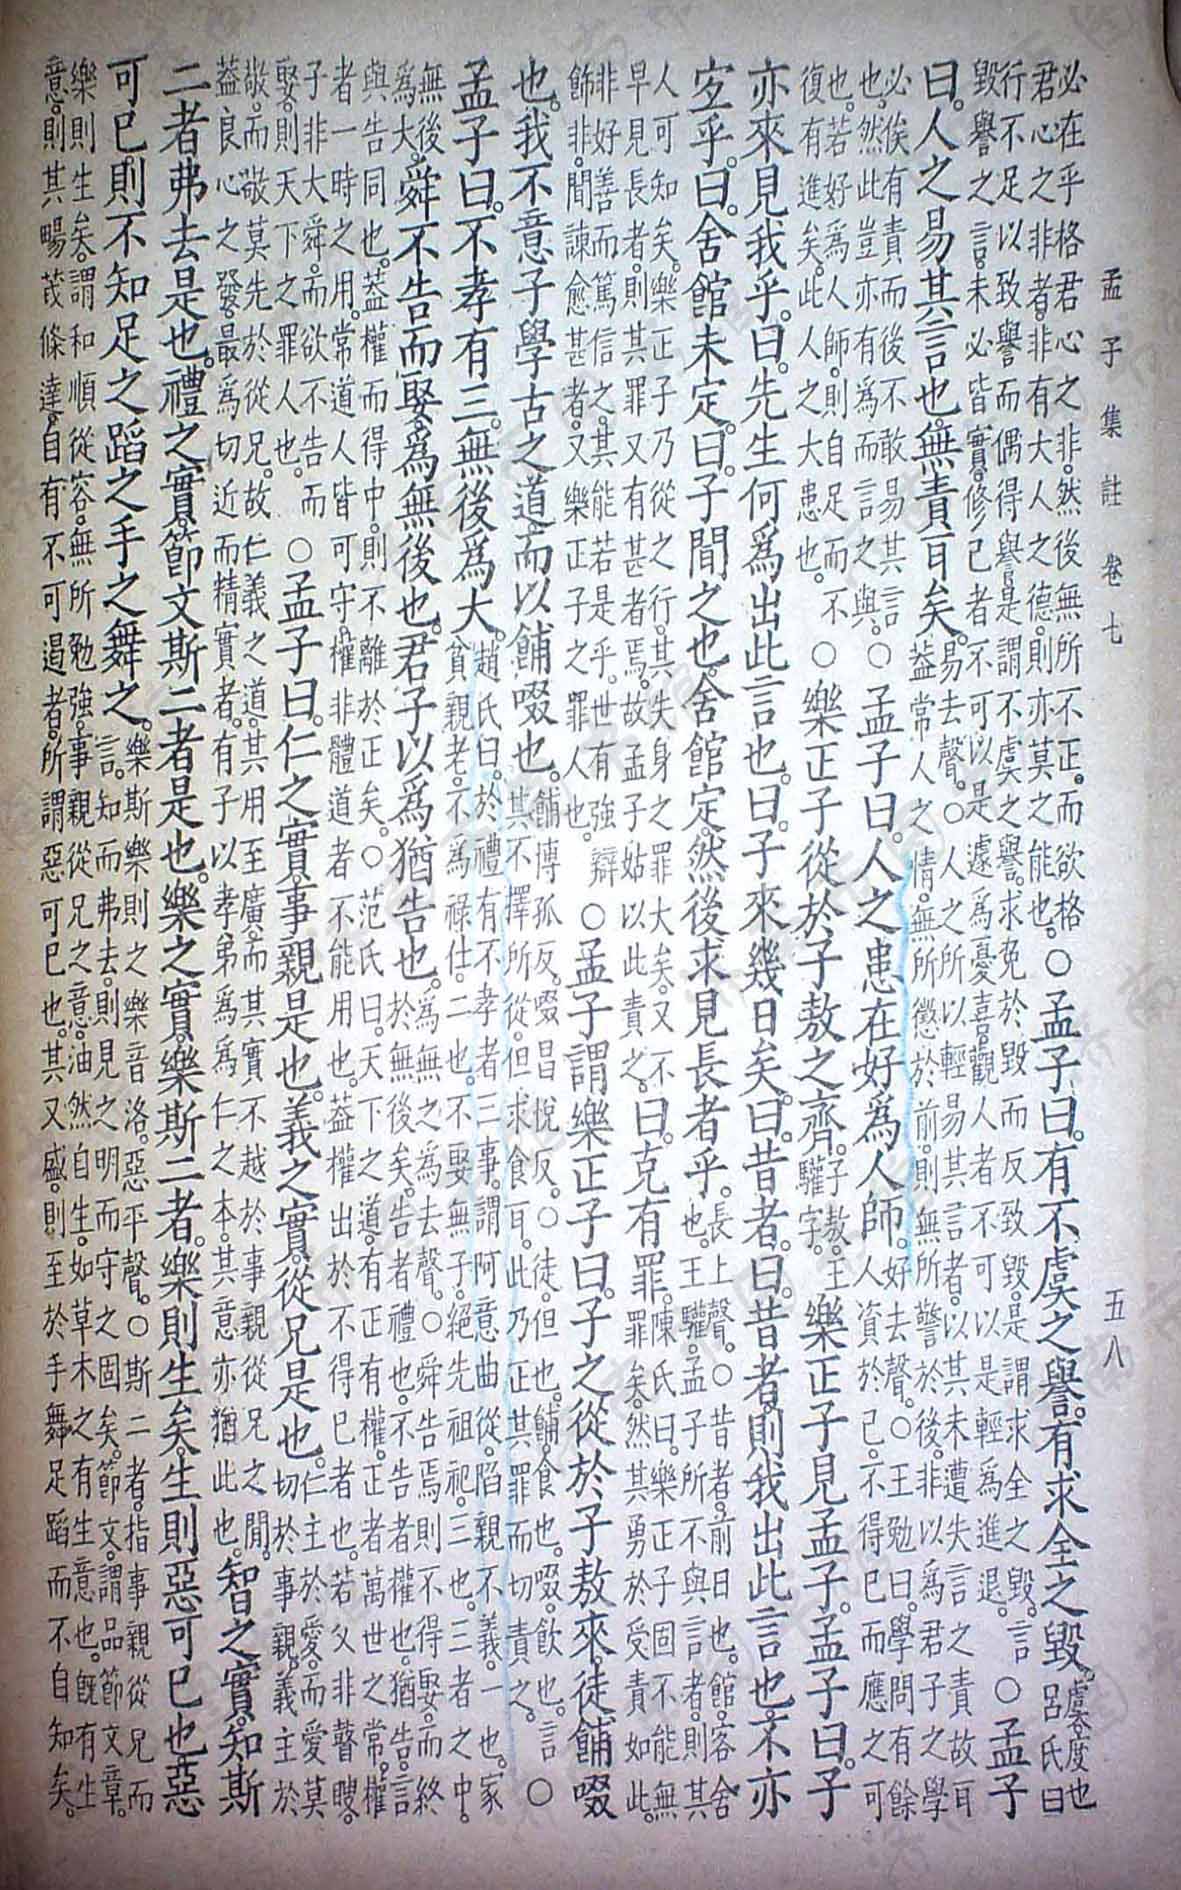 孟子集註 卷七 五八
必在乎格君心之非。然後無所不正。而欲格
君心之非者。非有大人之德。則亦莫之能也。
○孟子曰。有不虞之譽。有求全之毀。
虞度也
呂氏曰
行不足以致譽而偶得譽。是謂不虞之譽。求免於毀而反致毀。是謂求全之毀。言
毀譽之言。未必皆實。修己者不可以是遽為憂喜。觀人者不可以是輕為進退。
○孟子
曰。人之易其言也。無責耳矣。
易去聲。○人之所以輕易其言者。以其未遭失言之責故耳
蓋常人之情。無所懲於前。則無所警於後。非以為君子之學
必俟有責而後不敢易其言
也。然此豈亦有為而言之與。
○孟子曰。人之患在好為人師。
好去聲。○王勉曰。學問有餘
人資於己。不得已而應之可
也。若好為人師。則自足而不
復有進矣。此人之大患也。
○樂正子從於子敖之齊。
子敖。王
驩字。
樂正子見孟子。孟子曰。子
亦來見我乎。曰。先生何為出此言也。曰。子來幾日矣。曰。昔者。曰。昔者則我出此言也。不亦
宜乎。曰。舍館未定。曰。子聞之也。舍館定。然後求見長者乎。
長上聲。○昔者。前日也。館。客舍
也。王驩。孟子所不與言者。則其
人可知矣。樂正子乃從之行。其失身之罪大矣。又不
早見長者。則其罪又有甚者焉。故孟子姑以此責之。
曰。克有罪。
陳氏曰。樂正子固不能無
罪矣。然其勇於受責如此。
非好善而篤信之。其能若是乎。世有強辯
飾非。聞諫愈甚者。又樂正子之罪人也。
○孟子謂樂正子曰。子之從於子敖來。徒餔啜
也。我不意子學古之道。而以餔啜也。
餔博孤反。啜昌悅反。○徒。但也。餔。食也。啜。飲也。言
其不擇所從。但求食耳。此乃正其罪而切責之。
○
孟子曰。不孝有三。無後為大。
趙氏曰。於禮有不孝者三事。謂阿意曲從。陷親不義。一也。家
貧親老。不為祿仕。二也。不娶無子。絕先祖祀。三也。三者之中。
無後
為大。
舜不告而娶。為無後也。君子以為猶告也。
為無之為去聲。○舜告焉則不得娶。而終
於無後矣。告者禮也。不告者權也。猶告。言
與告同也。蓋權而得中。則不離於正矣。○范氏曰。天下之道。有正有權。正者萬世之常。權
者一時之用。常道人皆可守。權非體道者不能用也。蓋權出於不得已者也。若父非瞽瞍。
子非大舜。而欲不告而
娶。則天下之罪人也。
○孟子曰。仁之實。事親是也。義之實。從兄是也。
仁主於愛。而愛莫
切於事親。義主於
敬。而敬莫先於從兄。故仁義之道。其用至廣。而其實不越於事親從兄之閒。
蓋良心之發。最為切近而精實者。有子以孝弟為為仁之本。其意亦猶此也。
智之實。知斯
二者弗去是也。禮之實。節文斯二者是也。樂之實。樂斯二者。樂則生矣。生則惡可已也。惡
可已。則不知足之蹈之手之舞之。
樂斯樂則之樂音洛。惡平聲。○斯二者。指事親從兄而
言。知而弗去。則見之明而守之固矣。節文。謂品節文章。
樂則生矣。謂和順從容。無所勉強。事親從兄之意。油然自生。如草木之有生意也。既有生
意。則其暢茂條達。自有不可遏者。所謂惡可已也。其又盛。則至於手舞足蹈而不自知矣。